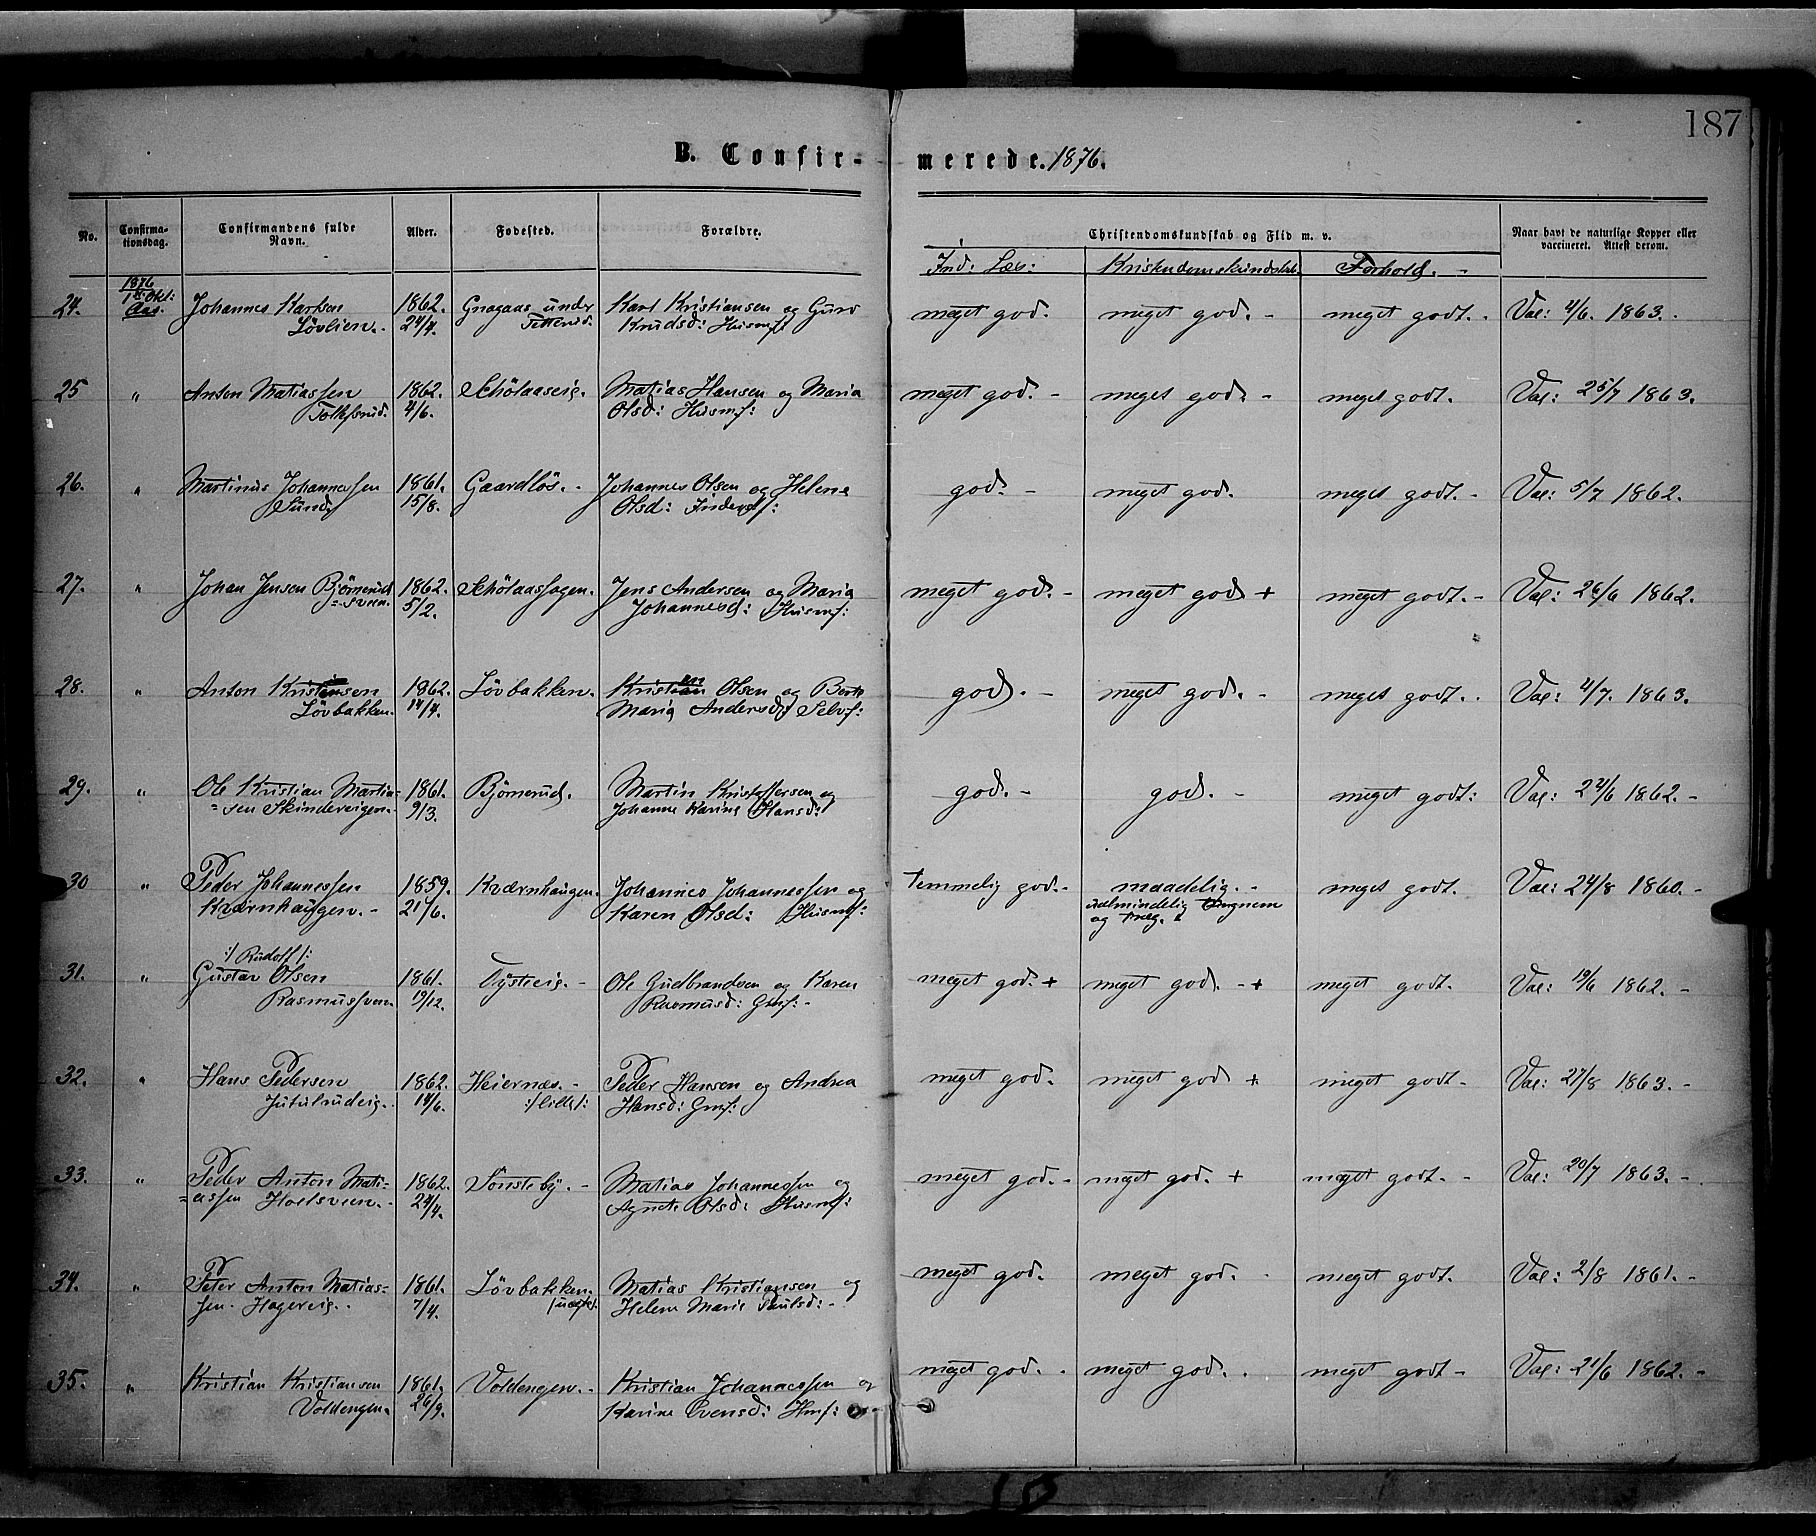 187
B. Confir- merede. 1876.
No. Confirma- tionsdag. Confirmandens fulde Navn. Alder. Fødested. Forældre. Christendomskundskab og Flid m. v. Naar havt de naturlige Kopper eller vaccineret. Attest derom.
Ind: Læs: Kristendomskundskab. Forhold. -
1876
24. 1 Okt: Johannes Karlsen 1862. Gnagaas under Karl Kristiansen og Guro meget god. meget god. - meget godt. - Vac: 4/6. 1863. -
Aas. Lövlien. 24/4. Tetterud. Knudsd: Husmf:
25 " Anton Matiassen 1862. Schölaaseig. Matias Hansen og Maria meget god. - meget god. - meget godt. Vac: 25/7 1863.
Tolkfsrud. 4/6. Olsd: Husmf:
26. " Martinus Johannessen 1861. Gaardlös. - Johannes Olsen og Helene god. - meget god. meget godt. - Vac: 5/7 1862.
Sund. 15/8. Olsd: Inderstf:
27. " Johan Jensen Björnerud 1862. Schölaashagen. Jens Andersen og Maria meget god. - meget god + meget godt. - Vac: 26/6 1862.
=sveen. 5/2. Johannesd: Husmf:
28. " Anton Kristensen 1862. Lövbakken. Kristian Olsen og Berte god. - meget god. - meget godt. Vac: 4/7. 1863.
Lövbakken. 14/4. Maria Andersd: Selvf:
29. " Ole Kristian Martin- 1861. Björnerud. Martin Kristoffersen og god. - god. - meget godt: Vac: 24/6 1862. -
=sen Skindereigen. 9/3. Johanne Karine Hansd:
30 " Peder Johannessen 1859. Kværnhaugen. Johannes Johannessen og temmelig god. - maadelig. - meget godt. Vac: 24/8 1860. -
Kværnhaugen. - 21/6. Karen Olsd: Husmf: ualmindelig
og træg.
:/ Rudolf /:
31. " Gustav Olsen 1861. Tysteig. - Ole Gudbrandsen og Karen meget god. + meget god. - + meget godt. Vac: 19/6 1862. -
Rasmussveen. 19/12. Rasmusd: Gmf: -
32. " Hans Pedersen 1862. Heiernæs. - Peder Hansen og Andrea meget god. meget god + meget godt - Vac: 27/8 1863. -
Jutulrudeig. 14/6. :/lille/: Hansd: Gmf:
33. " Peder Anton Mati- 1862. Tönsteby. - Matias Johannessen og meget god. - meget god. + meget godt. - Vac: 20/7 1863. -
=assen Holtsveen. - 24/4. Agnete Olsd: Husmf:
34. " Peter Anton Matias- 1861. Lövbakken. Matias Kristiansen og meget god. meget god. - meget godt. Vac: 2/8 1861. -
sen. Hagereig. 7/4. Helene Marie Poulsd: -
35. " Kristian Kristiansen 1861. Voldengen. - Kristian Johannessen og meget god. - meget god. . meget godt - Vac: 21/6 1862. -
Voldengen. 26/9. Karine Evensd: Hmf: